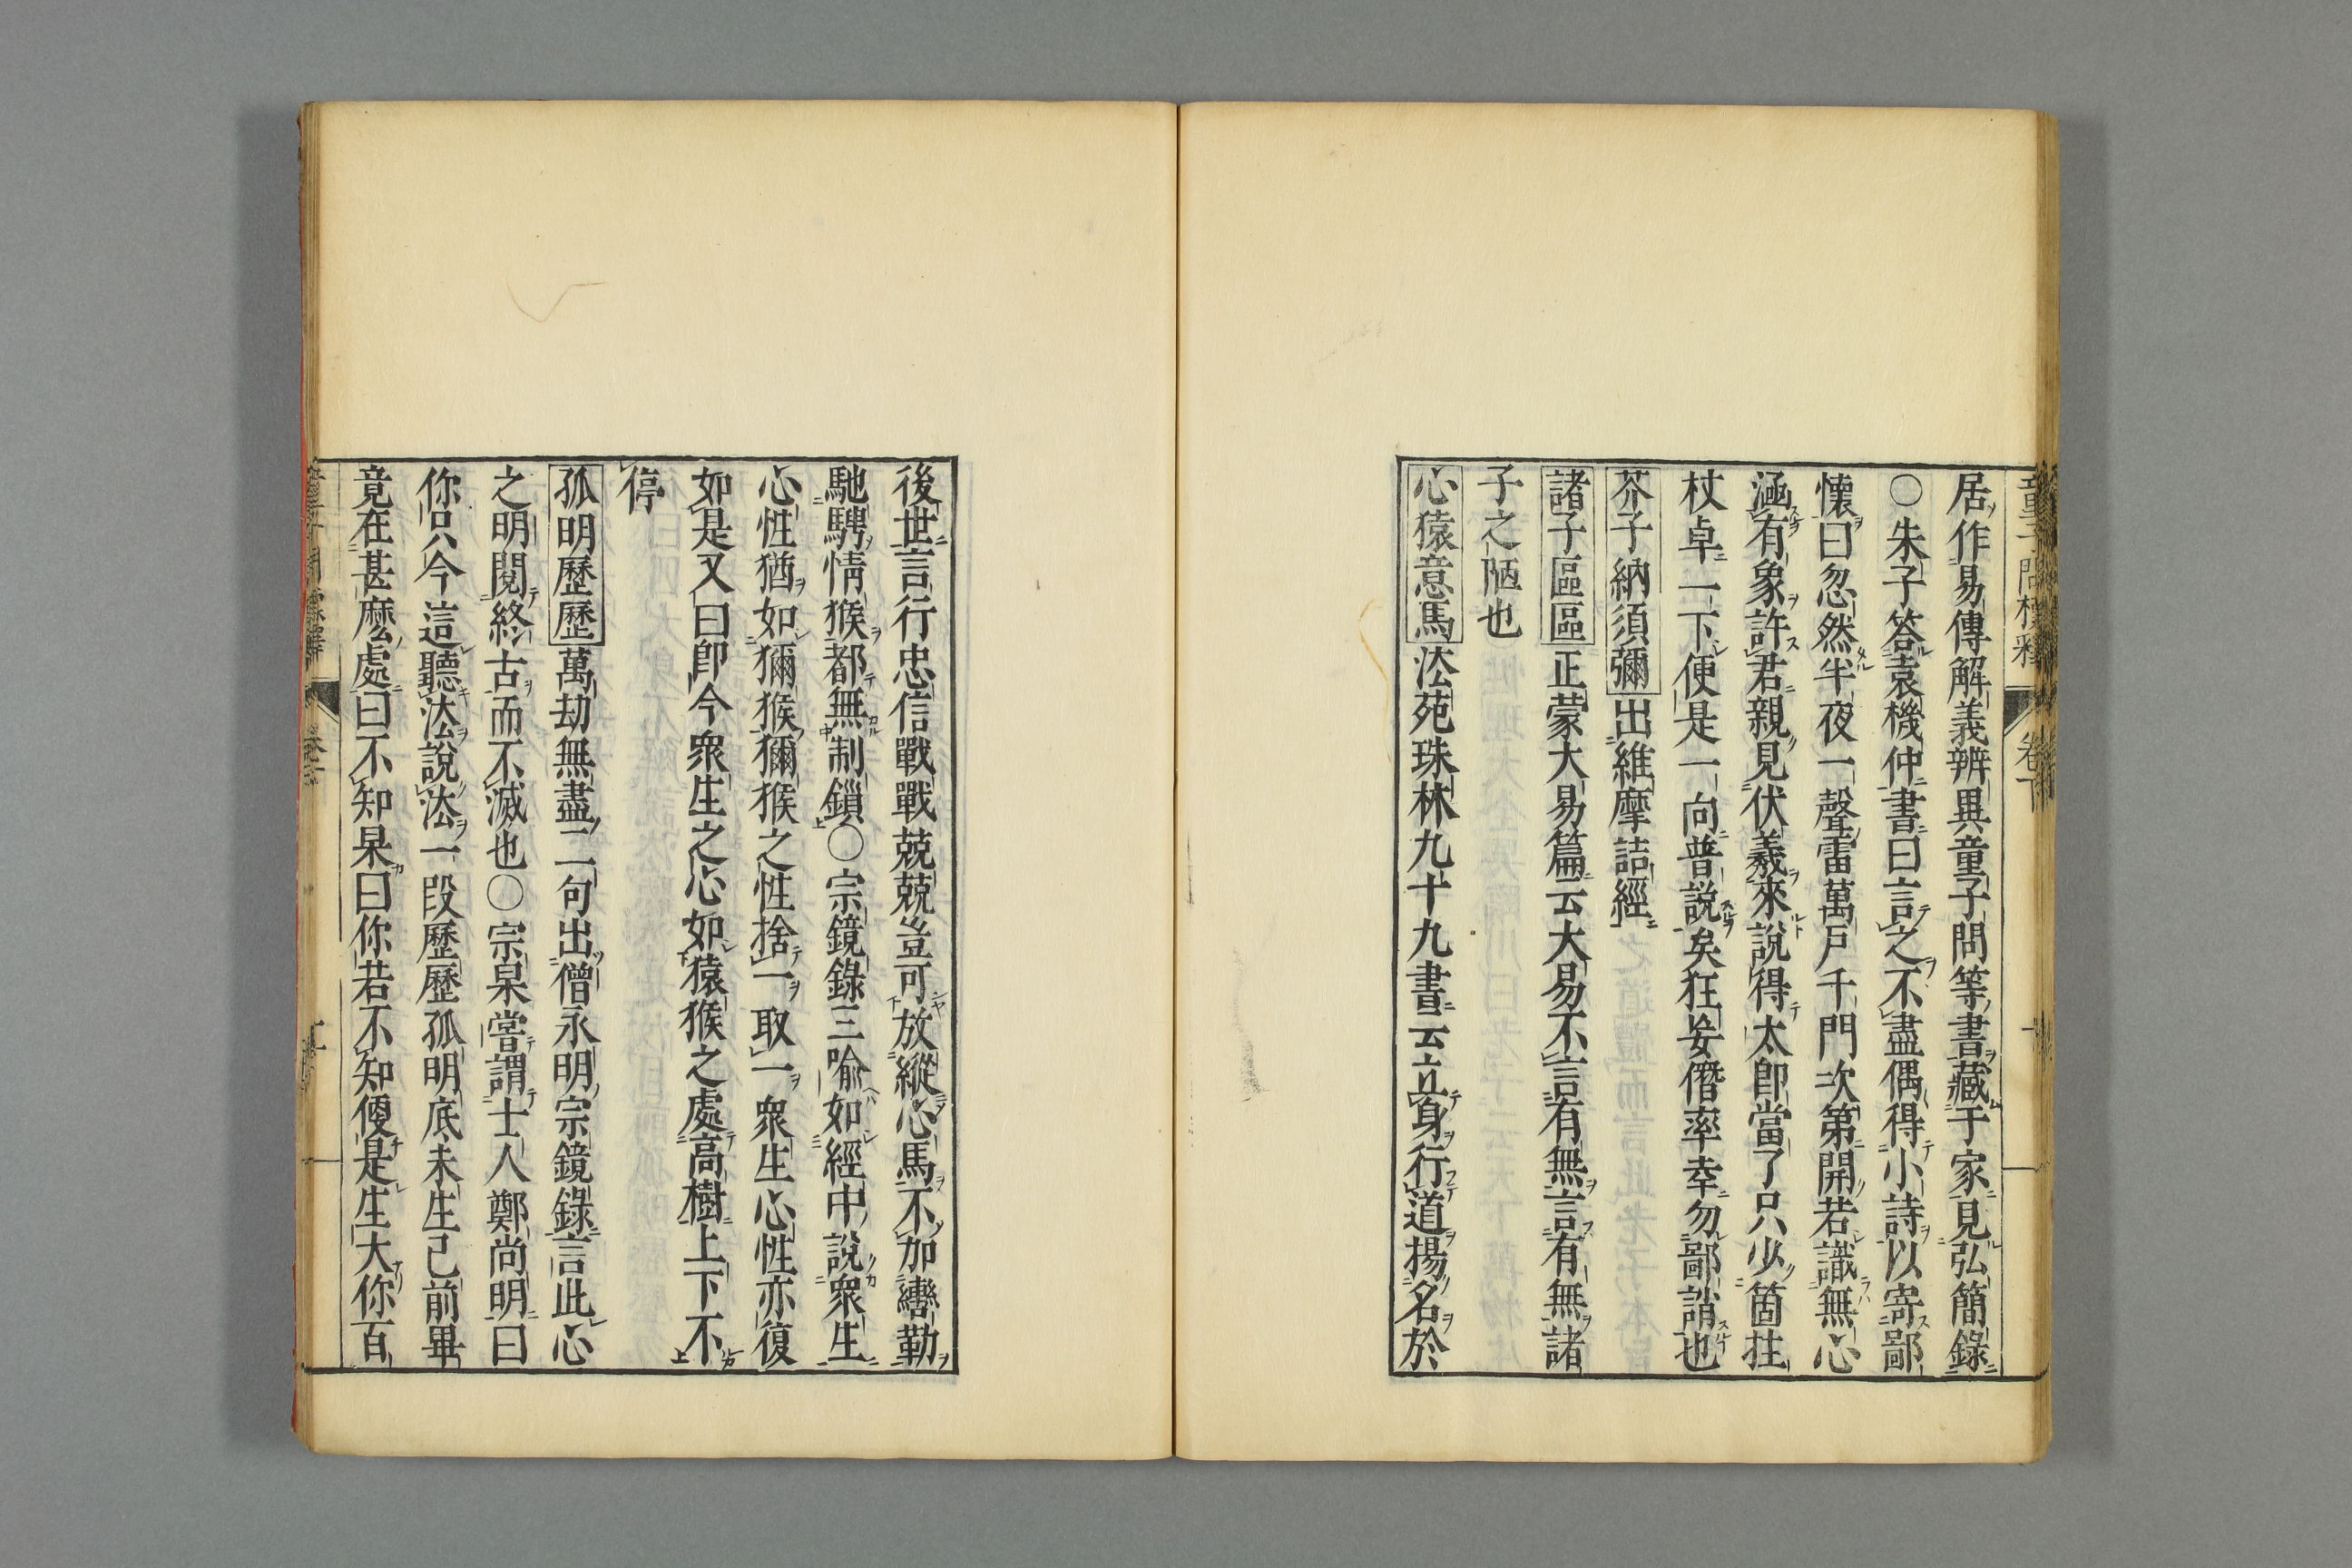 童子問標釋 卷下
居作易傳解義辨異童子問等書藏于家見弘簡錄
○朱子答袁機仲書曰言之不盡偶得小詩以寄鄙
懷曰忽然半夜一聲雷萬戶千門次第開若識無心
涵有象許君親見伏羲來說得太郎當了只少箇拄
杖卓一下便是一向普說矣狂妄僭率幸勿鄙誚也
芥子納須彌出維摩詰經
諸子區區正蒙大易篇云大易不言有無言有無諸
子之陋也
心猿意馬法苑珠林九十九書云立身行道揚名於
後世言行忠信戰戰兢兢豈可放縱心馬不加轡勒
馳騁情猴都無制鎖○宗鏡錄三喻如經中說衆生
心性猶如獼猴獼猴之性捨一取一衆生心性亦復
如是又曰即今衆生之心如猿猴之處高樹上下不
停
孤明歷歷萬劫無盡二句出僧永明宗鏡錄言此心
之明閱終古而不滅也○宗杲嘗謂士人鄭尚明曰
你只今這聽法說法一段歷歷孤明底未生已前畢
竟在甚麼處曰不知杲曰你若不知便是生大你百